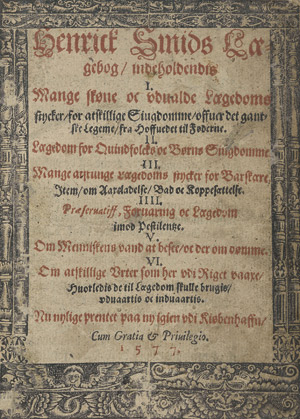 Henrick Smids Læ-
gebog / indeholdendis
I.
Mange skøne oc vdualde Lægedoms
stycker / for atskillige Siugdomme / offuer det gant-
ske Legeme / fra Hoffuedet til Føderne.
II.
Lægedom for Quindfolckis oc Børns Siugdomme
III.
Mange atzxunge Lægedoms stycker for Bartskere
Item / om Aareladelse / Bad oc Koppesættelse.
IIII.
Præseruatiff, Foruaring oc Lægedom
imod Pestilentze.
V.
Om Menniskens vand at besee / oc der om dømme.
VI.
Om atskillige Vrter som her vdi Riget vaaxe /
Huorledis de til Lægedom skulle brugis /
vduaartis oc induaartis.
Nu nylige prentet paa ny igien vdi Kiøbenhaffn /
Cum Gratia & Priuilegio.
1577.